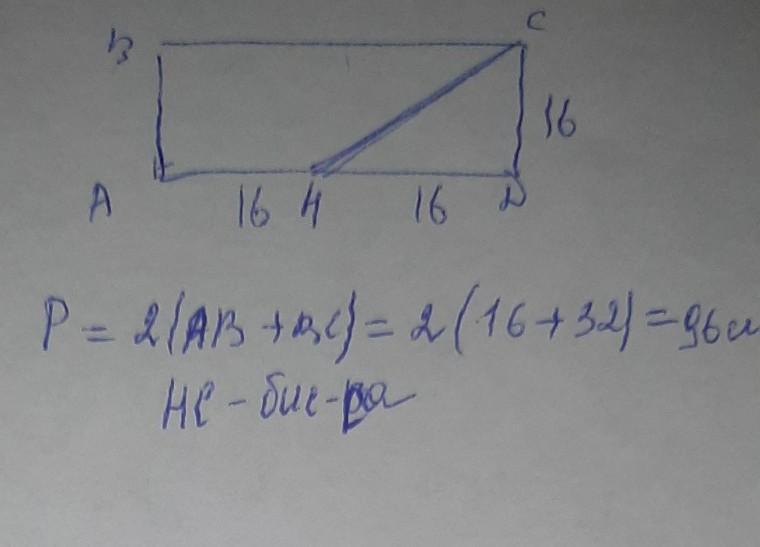 B C
16
A 16 H 16 D
P = 2(AB + BC) = 2(16 + 32) = 96см
HC - бис-ра